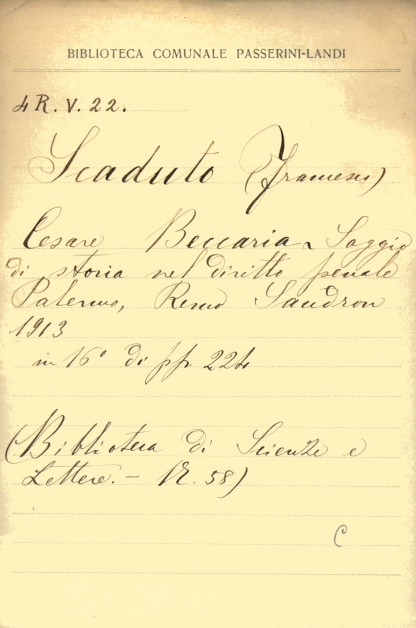 BIBLIOTECA COMUNALE PASSERINI-LANDI
4 R. V. 22.
Scaduto (Francesco)
Cesare Beccaria. Saggio
di storia nel diritto penale
Palermo, Remo Sandron
1913
in 16° di pp. 224
(Biblioteca di Scienze e
Lettere. - N. 58)
C